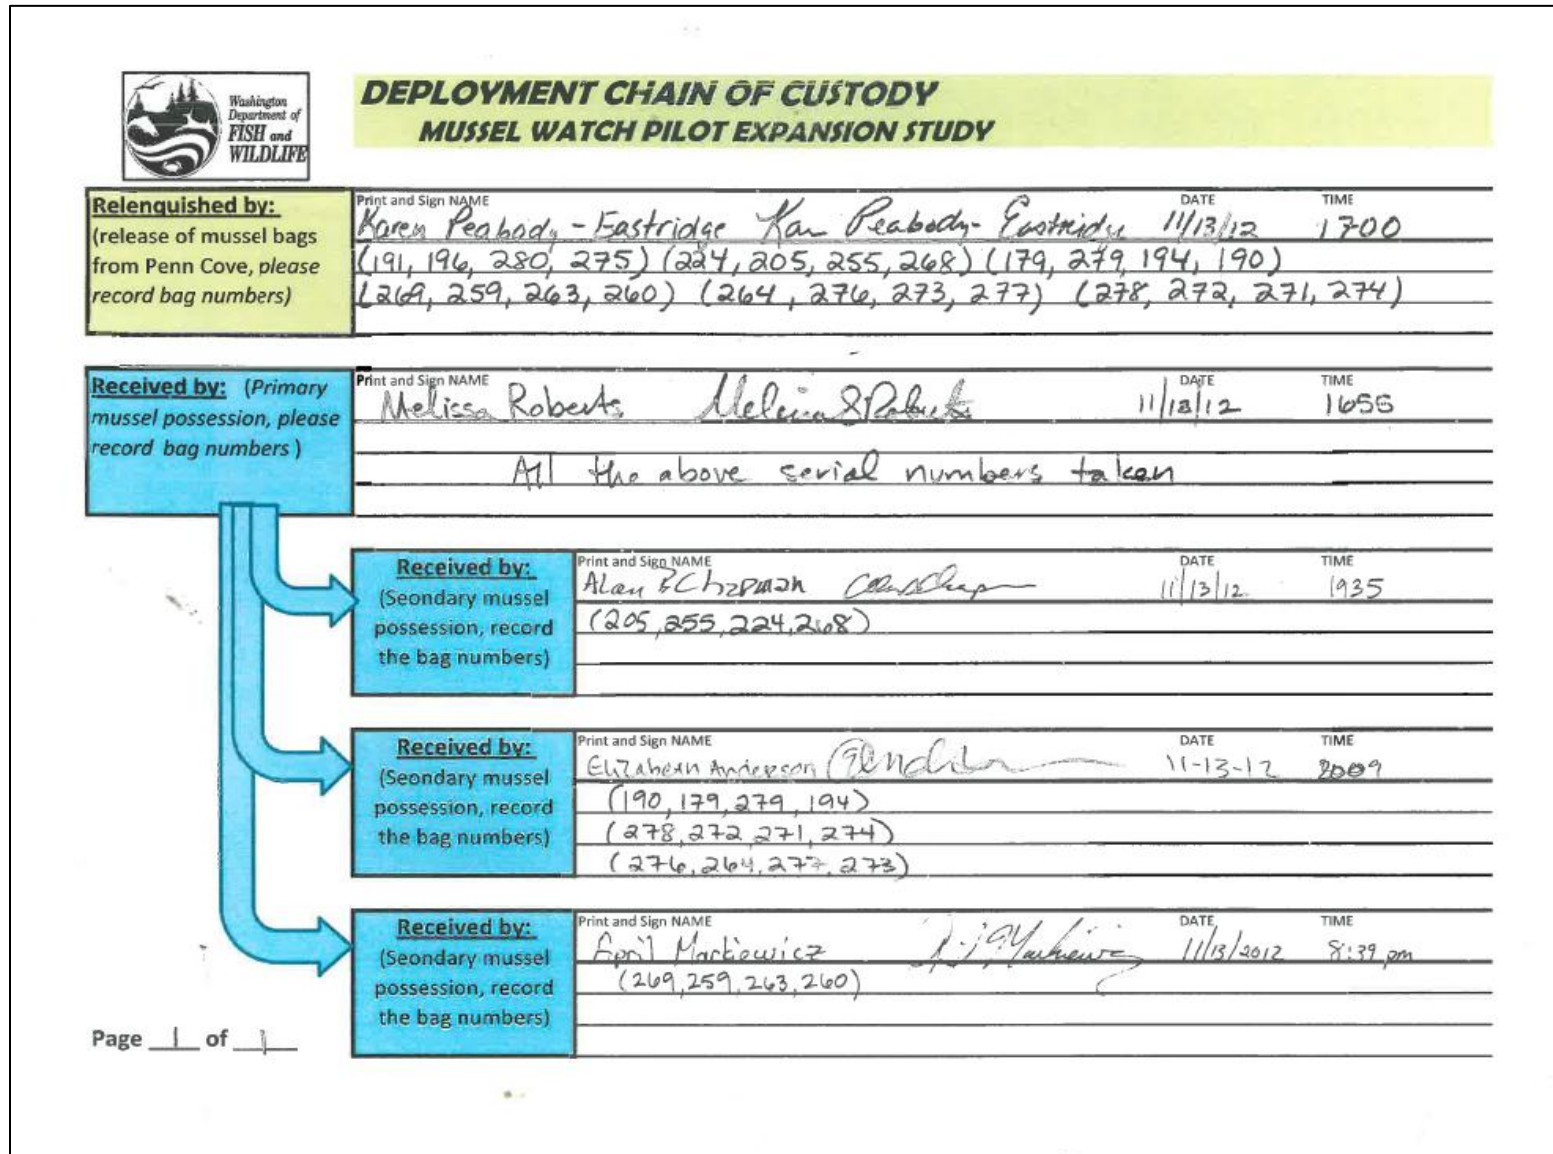 Washington
Department of
FISH and
WILDLIFE
DEPLOYMENT CHAIN OF CUSTODY
MUSSEL WATCH PILOT EXPANSION STUDY
Relenquished by:
(release of mussel bags
from Penn Cove, please
record bag numbers)
Print and Sign NAME DATE TIME
Karen Peabody-Eastridge Kar Peabody-Eastridge 11/13/12 1700
(191, 196, 280, 275) (224, 205, 255, 268) (179, 279, 194, 190)
(269, 259, 263, 260) (264, 276, 273, 277) (278, 272, 271, 274)
Received by: (Primary
mussel possession, please
record bag numbers )
Print and Sign NAME DATE TIME
Melissa Roberts Melissa S Roberts 11/13/12 1655
All the above serial numbers taken
Received by:
(Seondary mussel
possession, record
the bag numbers)
Print and Sign NAME DATE TIME
Alan B Chapman 11/13/12 1935
(205, 255, 224, 268)
Received by:
(Seondary mussel
possession, record
the bag numbers)
Print and Sign NAME DATE TIME
Elizabeth Anderson 11-13-12 2009
(190, 179, 279, 194)
(278, 272, 271, 274)
(276, 264, 277, 273)
Received by:
(Seondary mussel
possession, record
the bag numbers)
Print and Sign NAME DATE TIME
April Markiewicz 11/13/2012 8:39 pm
(269, 259, 263, 260)
Page 1 of 1